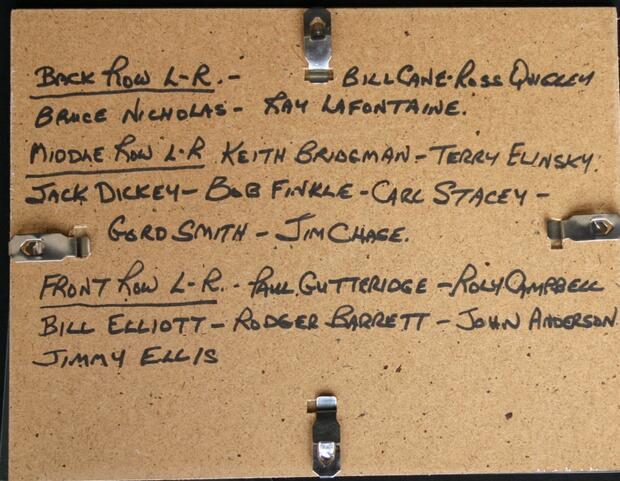 BACK ROW L-R. - BILL CANE - ROSS QUIGLEY
BRUCE NICHOLAS - RAY LAFONTAINE.
MIDDLE ROW L-R KEITH BRIDGMAN - TERRY ELINSKY.
JACK DICKEY - BOB FINKLE - CARL STACEY -
GORD SMITH - JIM CHASE.
FRONT ROW L-R. - PAUL GUTTERIDGE - ROLY CAMPBELL
BILL ELLIOTT - RODGER BARRETT - JOHN ANDERSON
JIMMY ELLIS